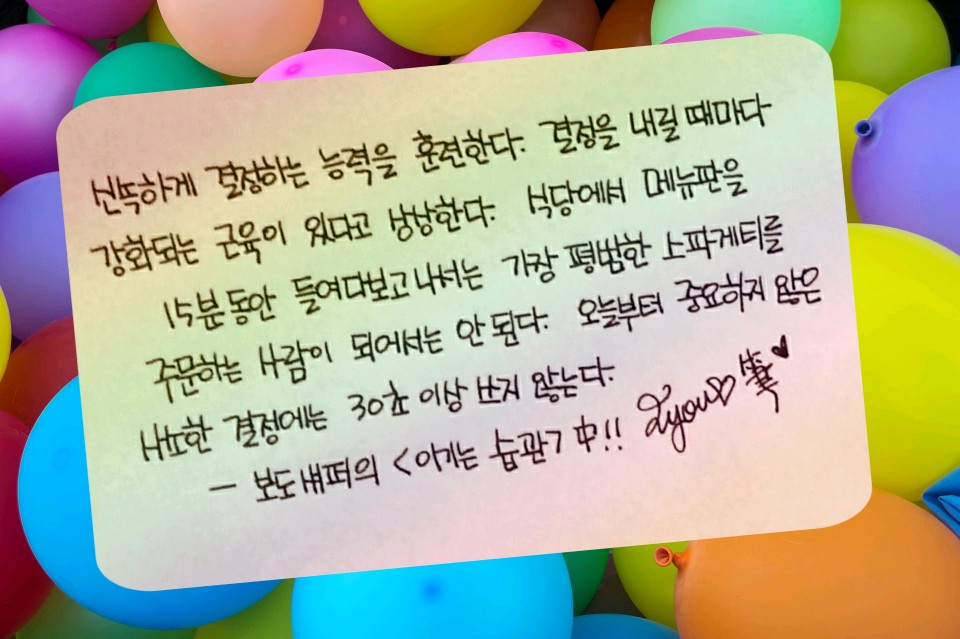 선뜩하게 결정하는 능력을 훈련한다. 결정을 내릴 때마다
강화되는 근육이 있다고 상상한다. 식당에서 메뉴판을
15분동안 들여다보고나서는 가장 평범한 스파게티를
주문하는 사람이 되어서는 안 된다. 오늘부터 중요하지 않은
사소한 결정에는 30초 이상 쓰지 않는다.
- 보도섀퍼의 <이기는 습관> 中!! 2you♡ 筆♥